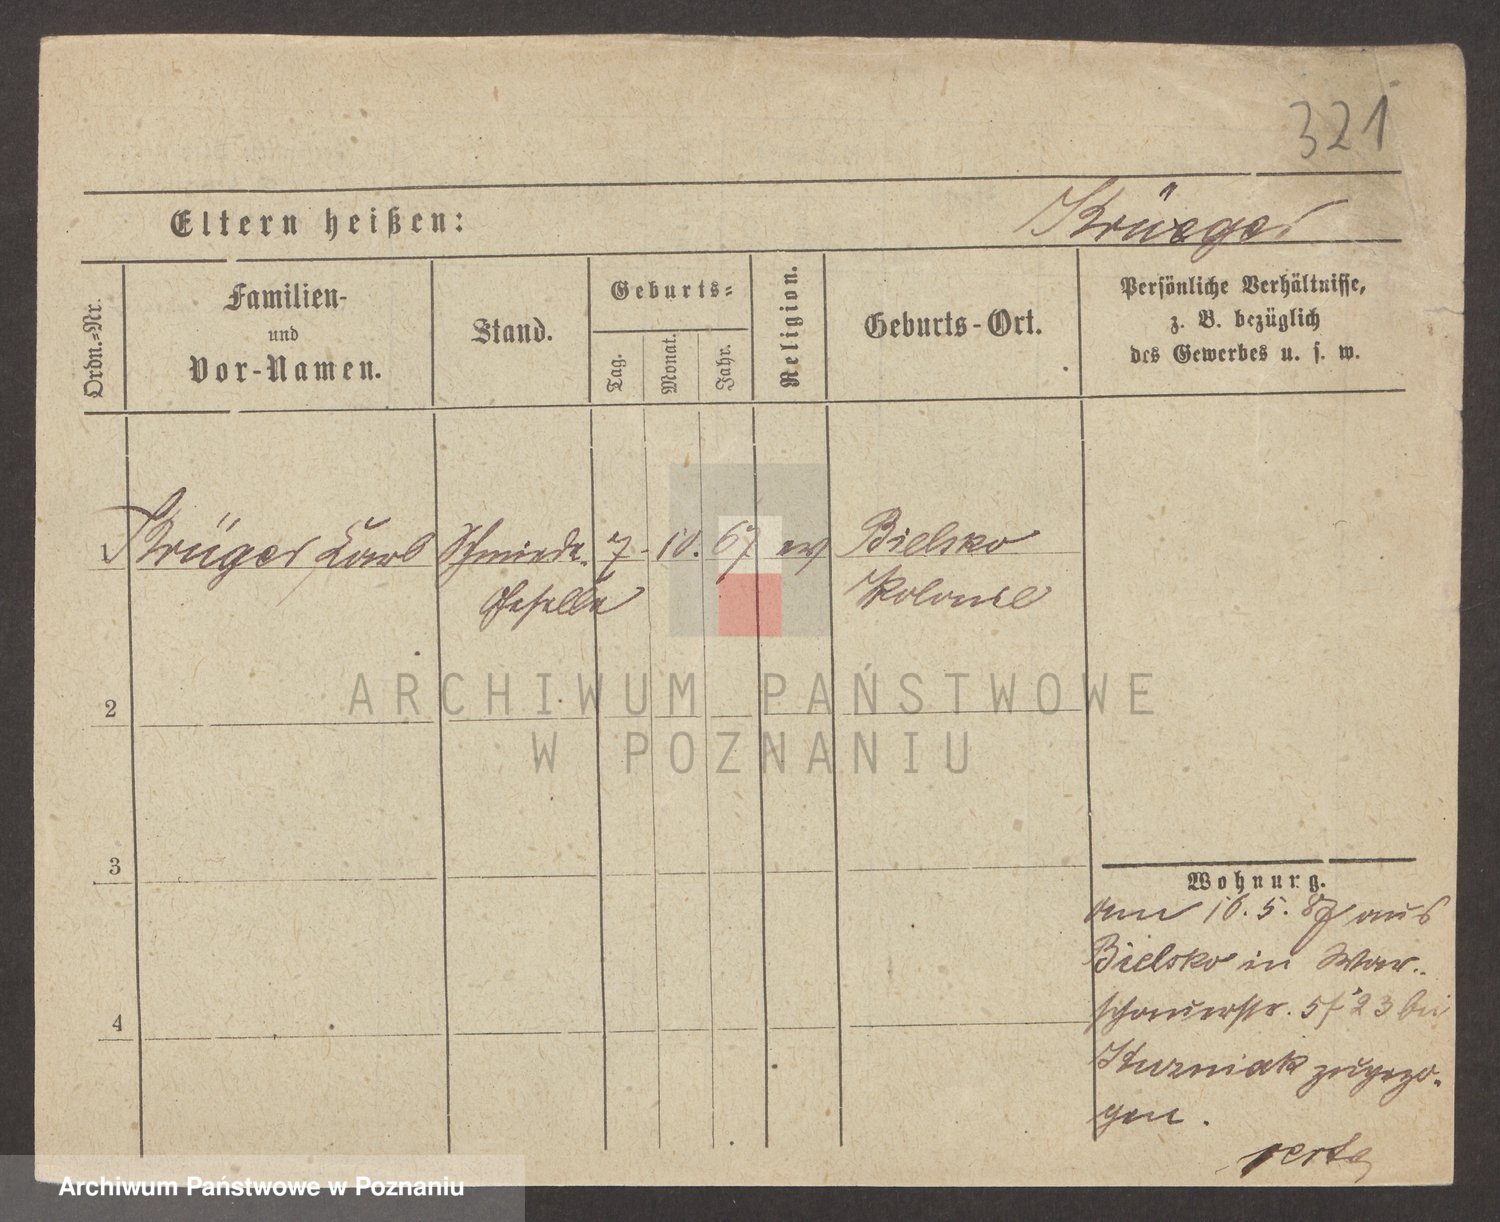 321
Eltern heißen:
Krüger
Ordn.-Nr.
Familien-
und
Vor-Namen.
Stand.
Geburts-
Tag.
Monat.
Jahr.
Religion.
Geburts-Ort.
Persönliche Verhältnisse,
z. B. bezüglich
des Gewerbes u. s. w.
Krüger Karl Schmiede- 7. 10. 67 ev Bielsko
Geselle Kolonie
ARCHIWUM PAŃSTWOWE
W POZNANIU
2
3
4
Wohnung.
am 16. 5. 87 aus
Bielsko in War-
schauerstr. 23 bei
zugezo-
gen.
verte
Archiwum Państwowe w Poznaniu